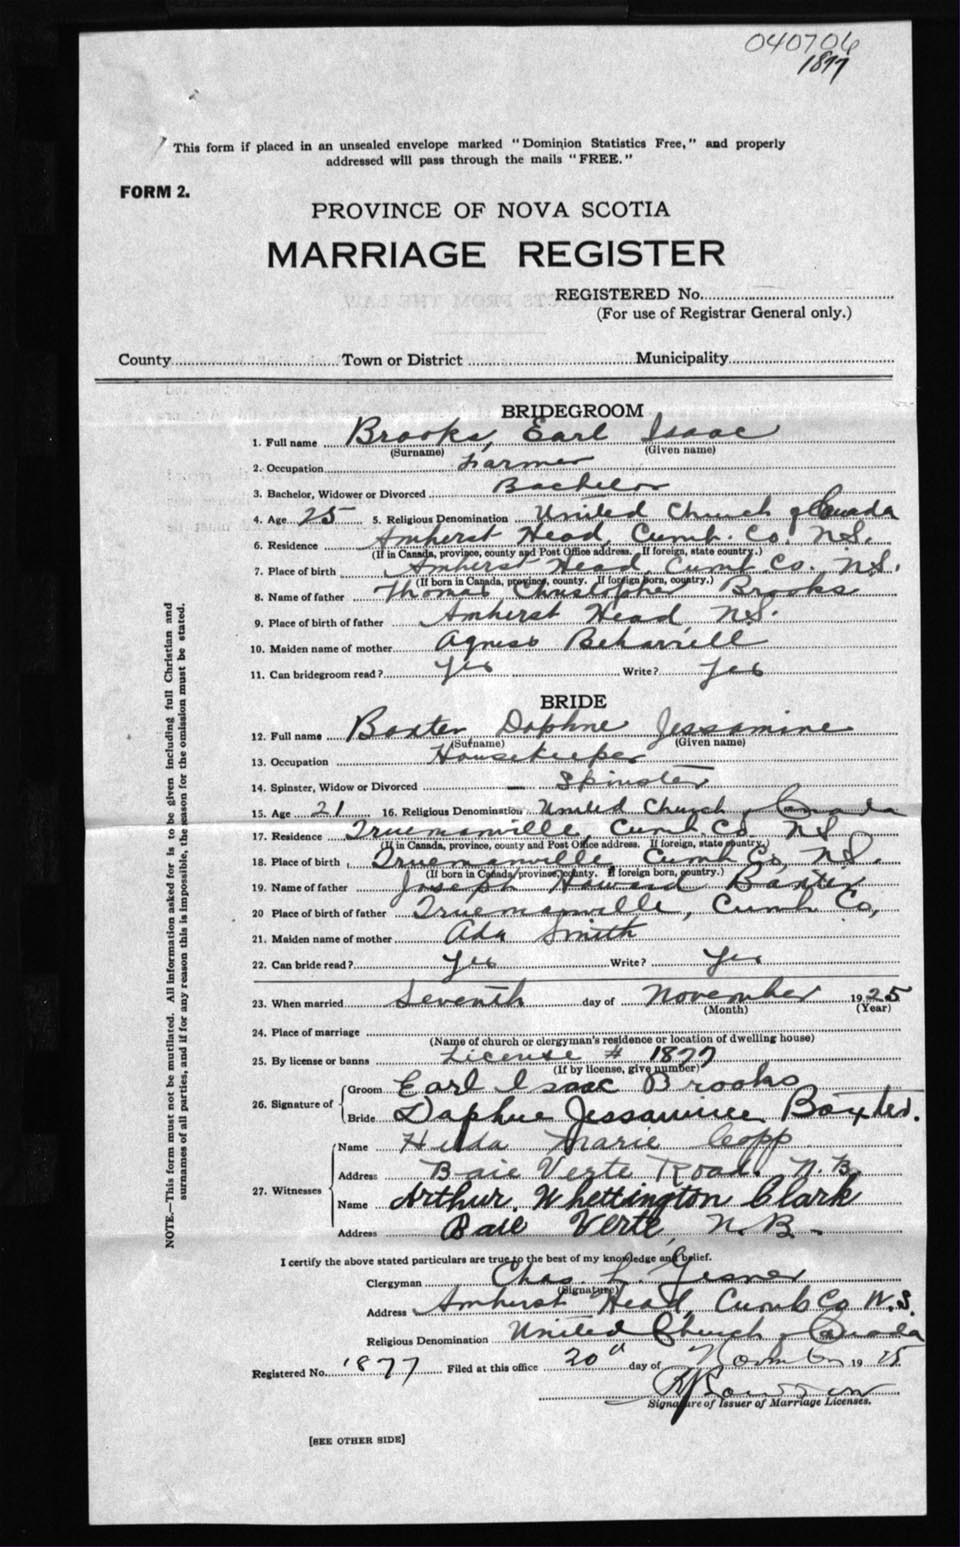 040706
1877
This form if placed in an unsealed envelope marked "Dominion Statistics Free," and properly
addressed will pass through the mails "FREE."
FORM 2.
PROVINCE OF NOVA SCOTIA
MARRIAGE REGISTER
REGISTERED No.
(For use of Registrar General only.)
County Town or District Municipality
BRIDEGROOM
1. Full name Brooks, Earl Isaac
(Surname) (Given name)
2. Occupation Farmer
3. Bachelor, Widower or Divorced Bachelor
4. Age 25 5. Religious Denomination United Church of Canada
6. Residence Amherst Head, Cumb. Co. N.S.
(If in Canada, province, county and Post Office address. If foreign, state country.)
7. Place of birth Amherst Head, Cumb Co. N.S.
(If born in Canada, province, county. If foreign born, country.)
8. Name of father Thomas Christopher Brooks
9. Place of birth of father Amherst Head, N.S.
10. Maiden name of mother Agness Beharrell
11. Can bridegroom read? Yes Write? Yes
BRIDE
12. Full name Baxter Daphne Jessamine
(Surname) (Given name)
13. Occupation Housekeeper
14. Spinster, Widow or Divorced – Spinster
15. Age 21 16. Religious Denomination United Church of Canada
17. Residence Truemanville, Cumb. Co. N.S.
(If in Canada, province, county and Post Office address. If foreign, state country.)
18. Place of birth Truemanville, Cumb Co, N.S.
(If born in Canada, province, county. If foreign born, country.)
19. Name of father Joseph Howard Baxter
20 Place of birth of father Truemanville, Cumb Co,
21. Maiden name of mother Ada Smith
22. Can bride read? Yes Write? Yes
23. When married Seventh day of November 1925
(Month) (Year)
24. Place of marriage
(Name of church or clergyman's residence or location of dwelling house)
25. By license or banns License # 1877
(If by license, give number)
26. Signature of
Groom Earl Isaac Brooks
Bride Daphne Jessamine Baxter.
27. Witnesses
Name Hilda Marie Copp
Address Baie Verte Road. N.B.
Name Arthur. Whettington Clark
Address Baie Verte, N.B.
I certify the above stated particulars are true to the best of my knowledge and belief.
Clergyman Chas. L. Gesner
(Signature)
Address Amherst Head, Cumb Co N.S.
Religious Denomination United Church of Canada
Registered No. 1877 Filed at this office 20th day of November 1925
Signature of Issuer of Marriage Licenses.
[SEE OTHER SIDE]
NOTE.—This form must not be mutilated. All information asked for is to be given including full Christian and
surnames of all parties, and if for any reason this is impossible, the reason for the omission must be stated.